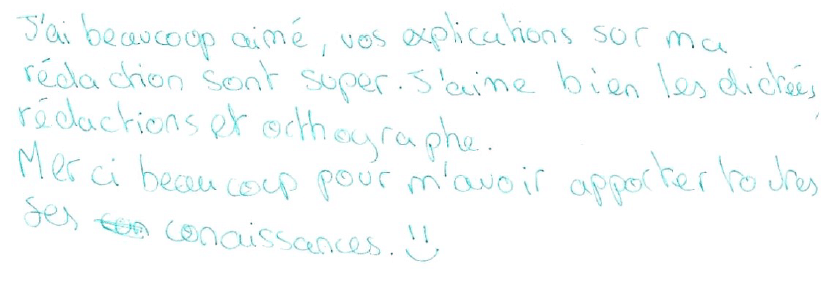 J'ai beaucoup aimé, vos explications sur ma
rédaction sont super. J'aime bien les dictées,
rédactions et orthographe.
Merci beaucoup pour m'avoir apporter toutes
ses conaissances. !!